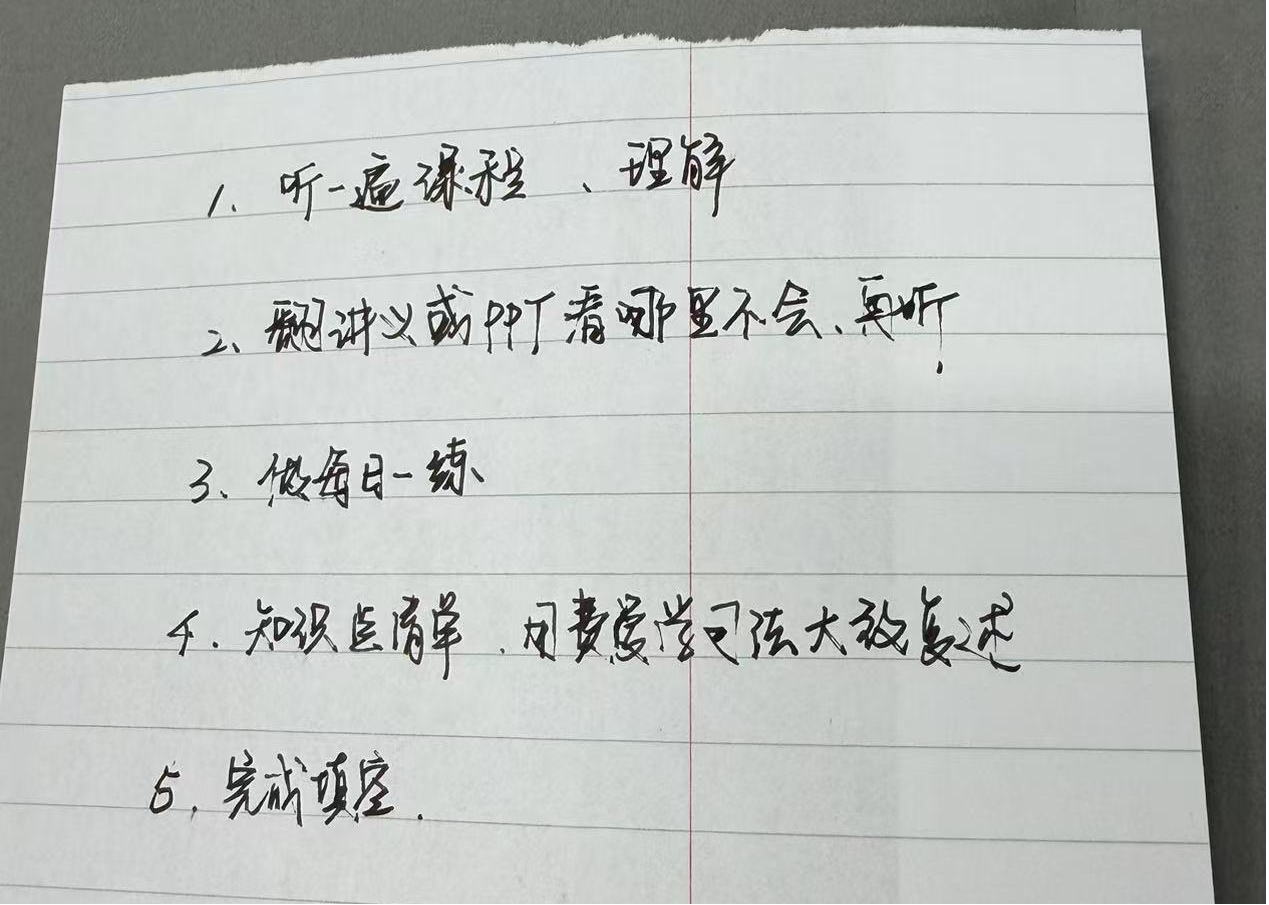 1、听一遍课程、理解
2、翻讲义或PPT看哪里不会、再听,
3、做每日一练
4.知识点清单、用费曼学习法大致复述
5.完成填空.